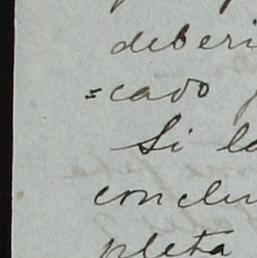 deberi
=cado
Si la
conclu
pleta